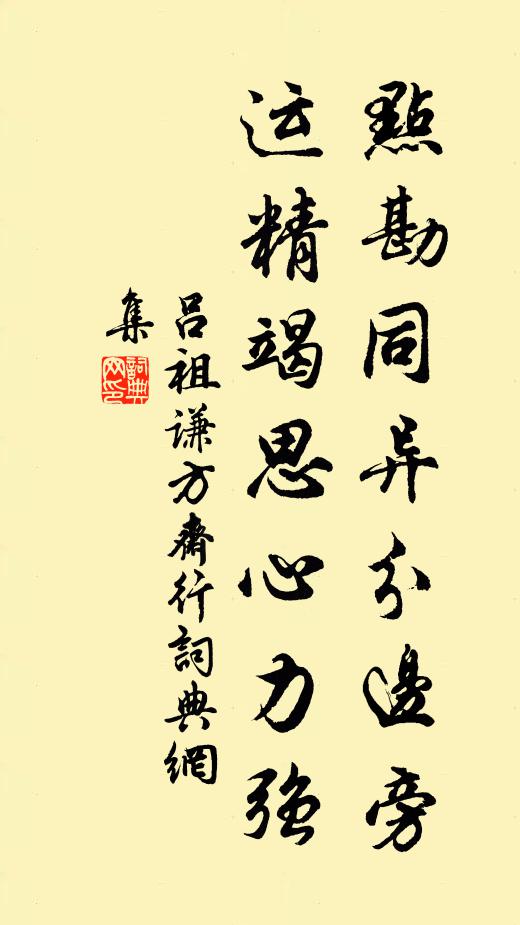 點勘同异分邊旁
运精竭思心力强
吕祖谦方齋行詞典網
集
詞典网印